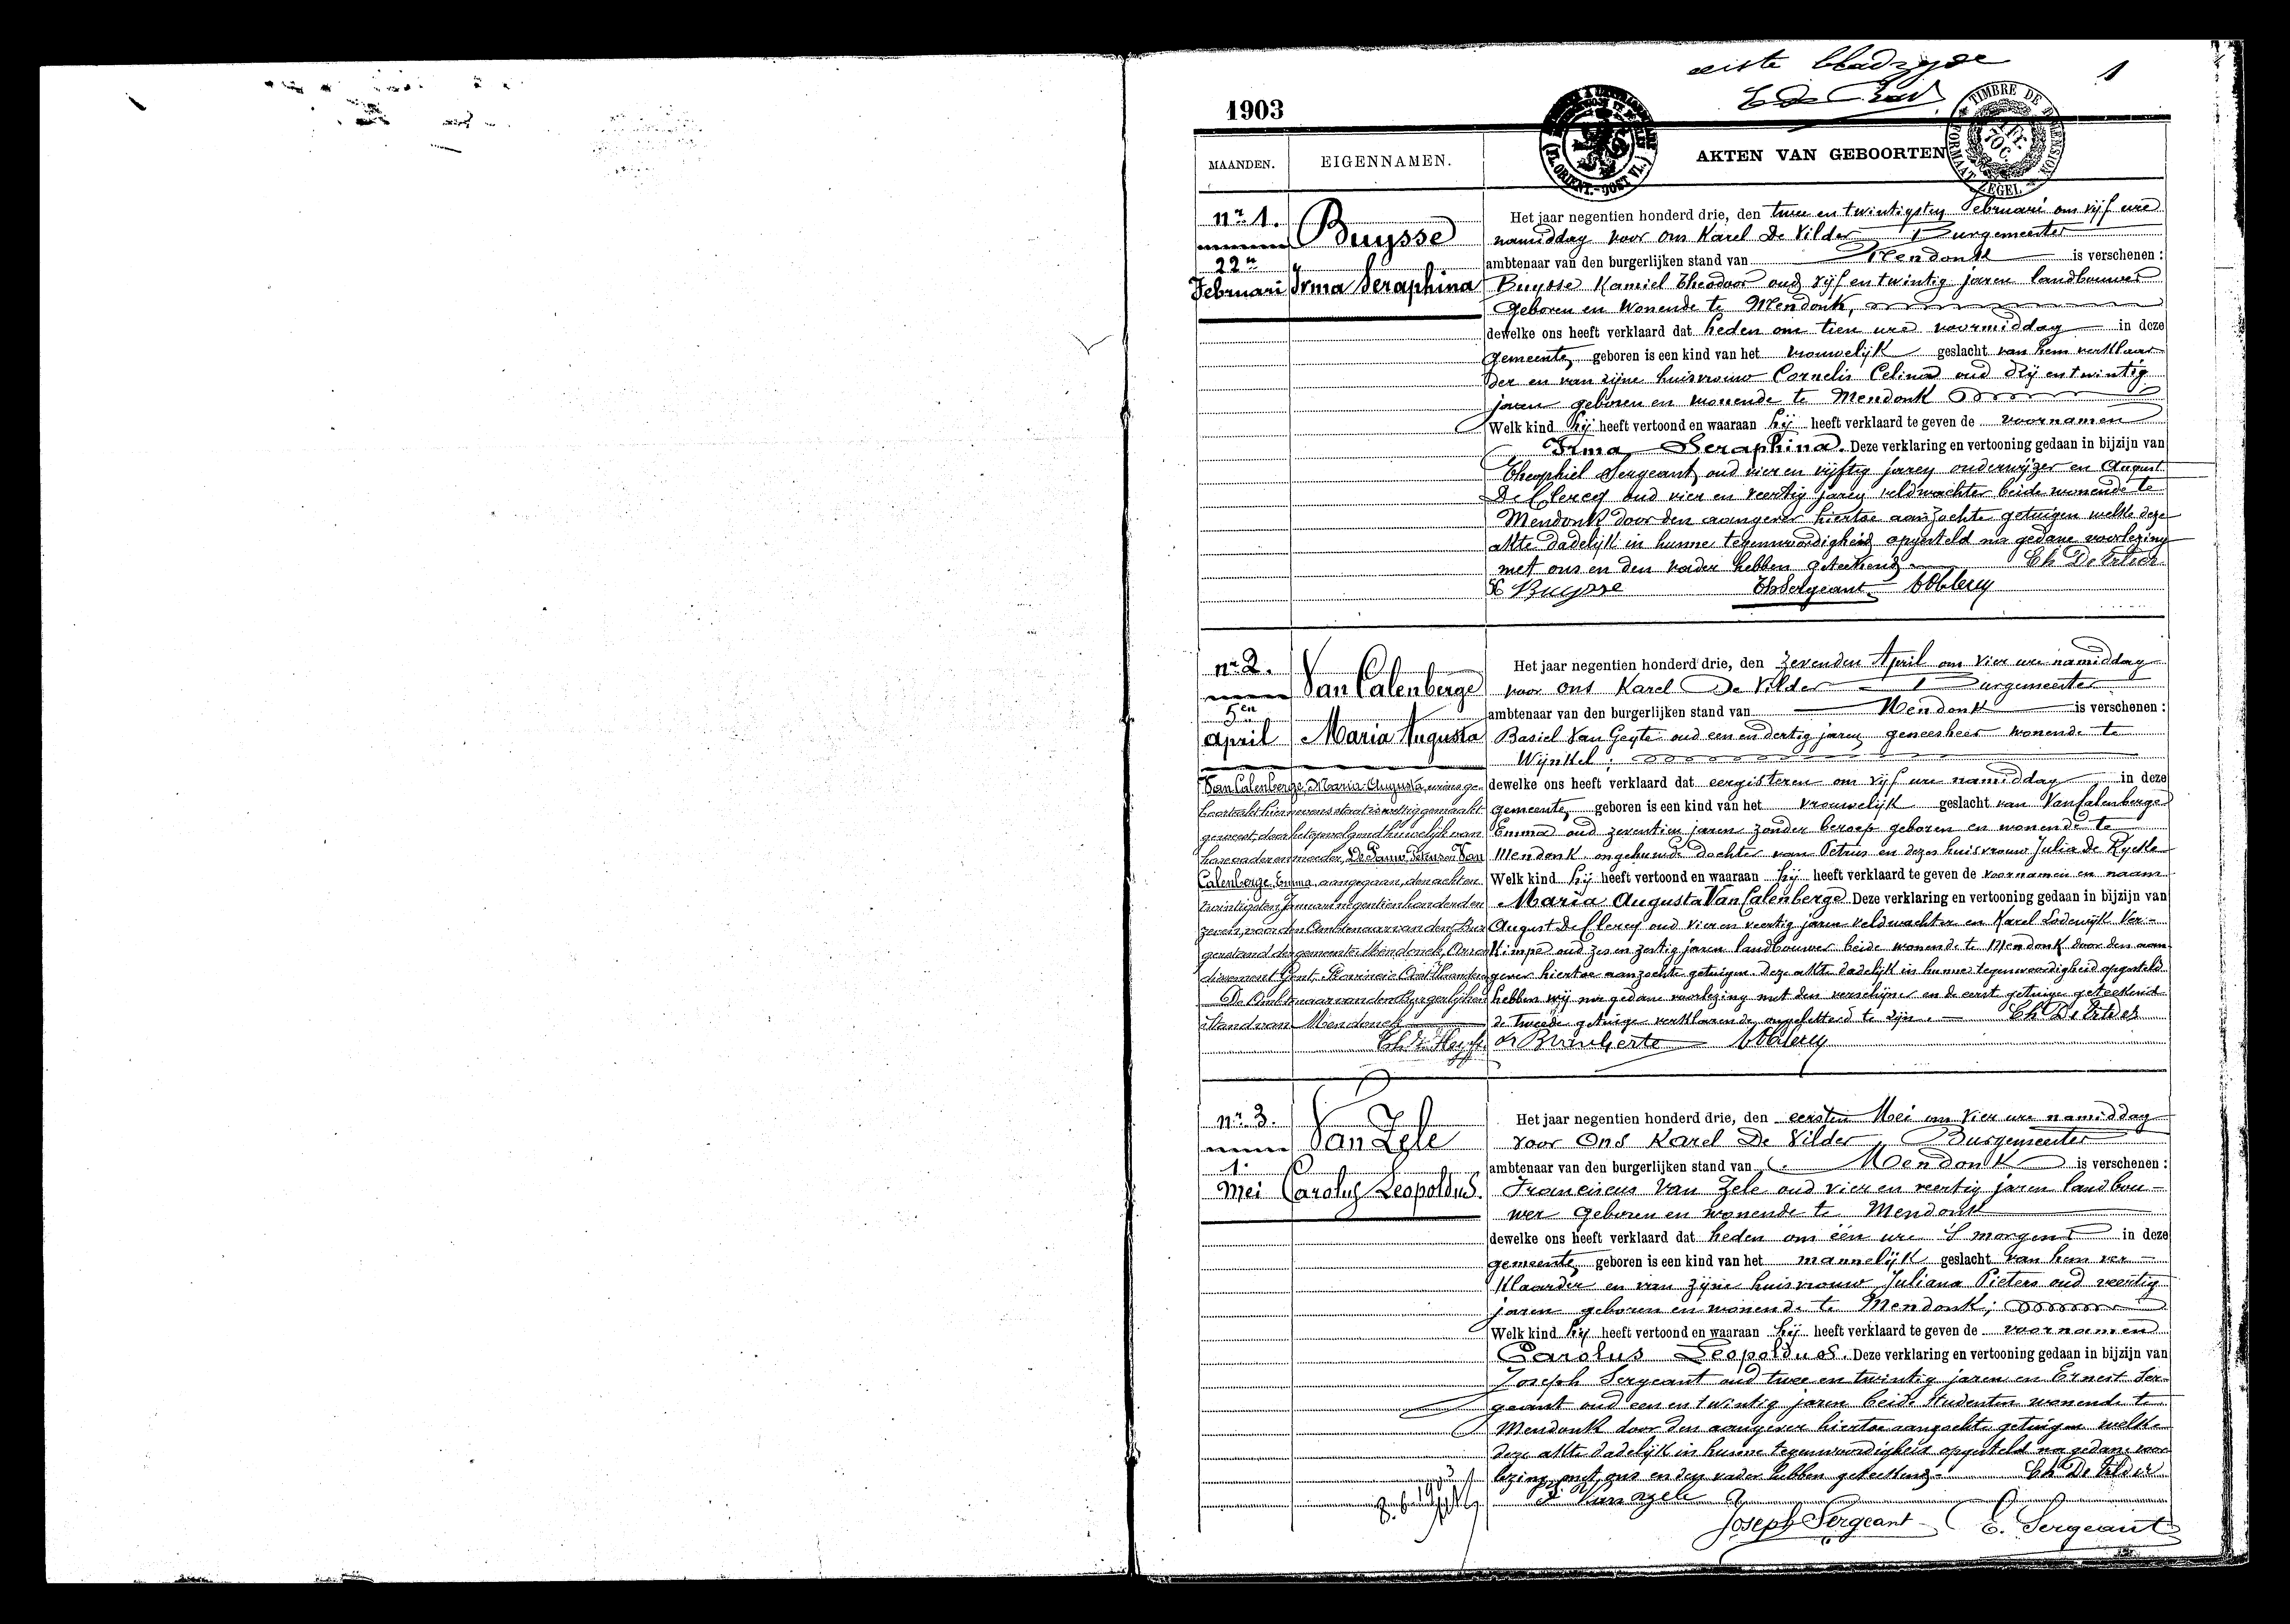 eerste bladzyde
1
1903
TIMBRE DE DIMENSION
FORMAAT ZEGEL
70 C.
(FL. ORIENT.-OOST VL.)
MAANDEN.
EIGENNAMEN.
AKTEN VAN GEBOORTEN
nr 1.
22n
Februari
Buysse
Irma Seraphina
Het jaar negentien honderd drie, den twee en twintigsten Februari om vijf ure
namiddag voor ons Karel De Vilder Burgemeester
ambtenaar van den burgerlijken stand van Mendonk is verschenen:
Buysse Kamiel Theodoor oud vijf en twintig jaren landbouwer
geboren en wonende te Mendonk,
dewelke ons heeft verklaard dat heden om tien ure voormiddag in deze
gemeente, geboren is een kind van het vrouwelijk geslacht van hem verklaar
der en van zijne huisvrouw Cornelis Celina oud drij en twintig
jaren geboren en wonende te Mendonk
Welk kind hij heeft vertoond en waaraan hij heeft verklaard te geven de voornamen
Irma Seraphina. Deze verklaring en vertooning gedaan in bijzijn van
Theophiel Sergeant oud vier en vijftig jaren onderwijzer en August
De Clercq oud vier en veertig jaren veldwachter beide wonende te
Mendonk door den aangever hiertoe aanzochte getuigen welke deze
akte dadelijk in hunne tegenwoordigheid opgesteld na gedane voorlezing
met ons en den vader hebben geteekend. Ch De Vilder
K Buysse Th Sergeant A De Clercq
nr 2.
5en
April
Van Calenberge
Maria Augusta
Van Calenberge, Maria Augusta, wiens ge-
boorteakt hiernevens staat is wettig gemaakt
geweest, door het opvolgend huwelijk van
hare vader en moeder, De Pauw Petrus en Van
Calenberge, Emma, aangegaan, den acht en
twintigsten Januari negentien honderd en
zeven, voor den Ambtenaar van den Bur
gerstand der gemeente Mendonck, Arron
dissement Gent, Provincie Oost-Vlaanderen
De Ambtenaar van den Burgerlijken
Stand van Mendonck
Het jaar negentien honderd drie, den zevenden April om vier ure namiddag
voor ons Karel De Vilder Burgemeester
ambtenaar van den burgerlijken stand van Mendonk is verschenen:
Basiel Van Geyte oud een en dertig jaren geneesheer wonende te
Wijnkel,
dewelke ons heeft verklaard dat eergisteren om vijf ure namiddag in deze
gemeente, geboren is een kind van het vrouwelijk geslacht van Van Calenberge
Emma oud zeventien jaren zonder beroep geboren en wonende te
Mendonk ongehuwde dochter van Petrus en dezes huisvrouw Julia De Rycke
Welk kind hij heeft vertoond en waaraan hij heeft verklaard te geven de voornamen en naam
Maria Augusta Van Calenberge Deze verklaring en vertooning gedaan in bijzijn van
August De Clercq oud vier en veertig jaren veldwachter en Karel Lodewijk Ver-
kimpe oud zes en zestig jaren landbouwer beide wonende te Mendonk door den aan
gever hiertoe aanzochte getuigen. Deze akte dadelijk in hunne tegenwoordigheid opgesteld
hebben wij na gedane voorlezing met den verschijner en de eerste getuige geteekend
de tweede getuige verklarende ongeletterd te zijn. Ch De Vilder
A De Clercq
nr 3.
1.
Mei
Van Zele
Carolus Leopoldus.
Het jaar negentien honderd drie, den eersten Mei om vier ure namiddag
voor Ons Karel De Vilder, Burgemeester
ambtenaar van den burgerlijken stand van Mendonk is verschenen:
Franciscus Van Zele oud vier en veertig jaren landbou-
wer geboren en wonende te Mendonk
dewelke ons heeft verklaard dat heden om één ure 's morgens in deze
gemeente, geboren is een kind van het mannelijk geslacht van hem ver-
klaarder en van zijne huisvrouw Juliana Pieters oud veertig
jaren geboren en wonende te Mendonk;
Welk kind hij heeft vertoond en waaraan hij heeft verklaard te geven de voornamen
Carolus Leopoldus. Deze verklaring en vertooning gedaan in bijzijn van
Joseph Sergeant oud twee en twintig jaren en Ernest Ser-
geant oud een en twintig jaren beide studenten wonende te
Mendonk door den aangever hiertoe aangezochte getuigen welke
deze akte dadelijk in hunne tegenwoordigheid opgesteld na gedane voor
lezing met ons en den vader hebben geteekend. Ch De Vilder
F. Van Zele
Joseph Sergeant E. Sergeant